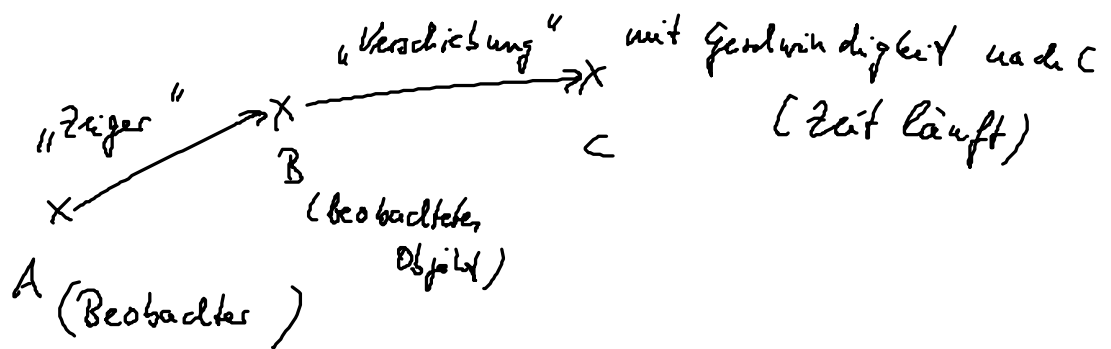 „Verschiebung“ mit Geschwindigkeit nach C
(Zeit läuft)
„Zeiger“
X
X
X
B
C
(beobachtetes
Objekt)
A
(Beobachter)